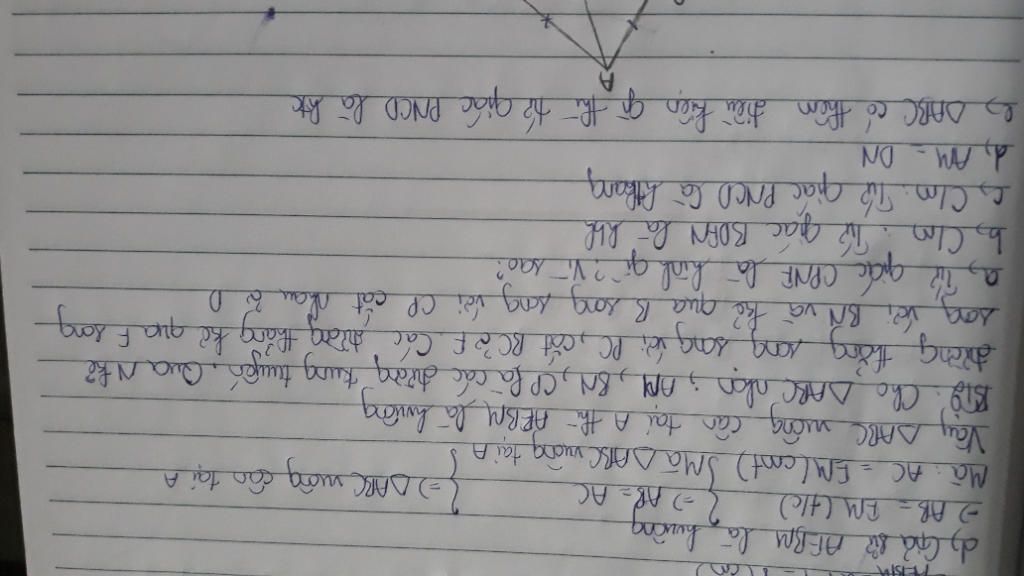 d, Giả sử AEBM là h.vuông
=> AB = EM (t/c) } => AB = AC } => ΔABC vuông cân tại A
Mà: AC = EM (cmt) } Mà ΔABC vuông tại A
Vậy ΔABC vuông cân tại A thì AEBM là h.vuông
Cho ΔABC nhọn; AM, BN, CP là các đường trung tuyến. Qua N kẻ
đường thẳng song song với PC, cắt BC ở F. Các đường thẳng kẻ qua F song
song với BN và kẻ qua B song song với CP cắt nhau ở D
a, Tứ giác CPNF là hình gì? Vì sao?
b, C/m: Tứ giác BDFN là hbh
c, C/m: Tứ giác PNCD là hthang
d, AM = DN
e, ΔABC có thêm điều kiện gì thì tứ giác PNCD là htc
A